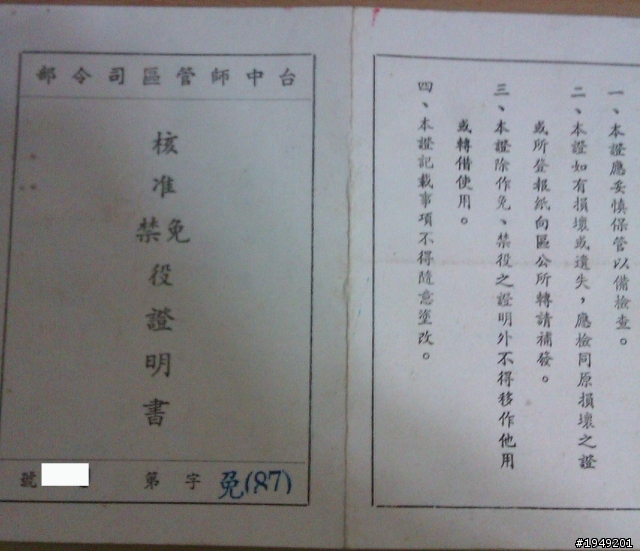 一、本證應妥慎保管以備檢查。
二、本證如有損壞或遺失，應檢同原損壞之證
或所登報紙向區公所轉請補發。
三、本證除作免、禁役之證明外不得移作他用
或轉借使用。
四、本證記載事項不得隨意塗改。
台中師管區司令部
核准免禁役證明書
免(87)字第號
#1949201